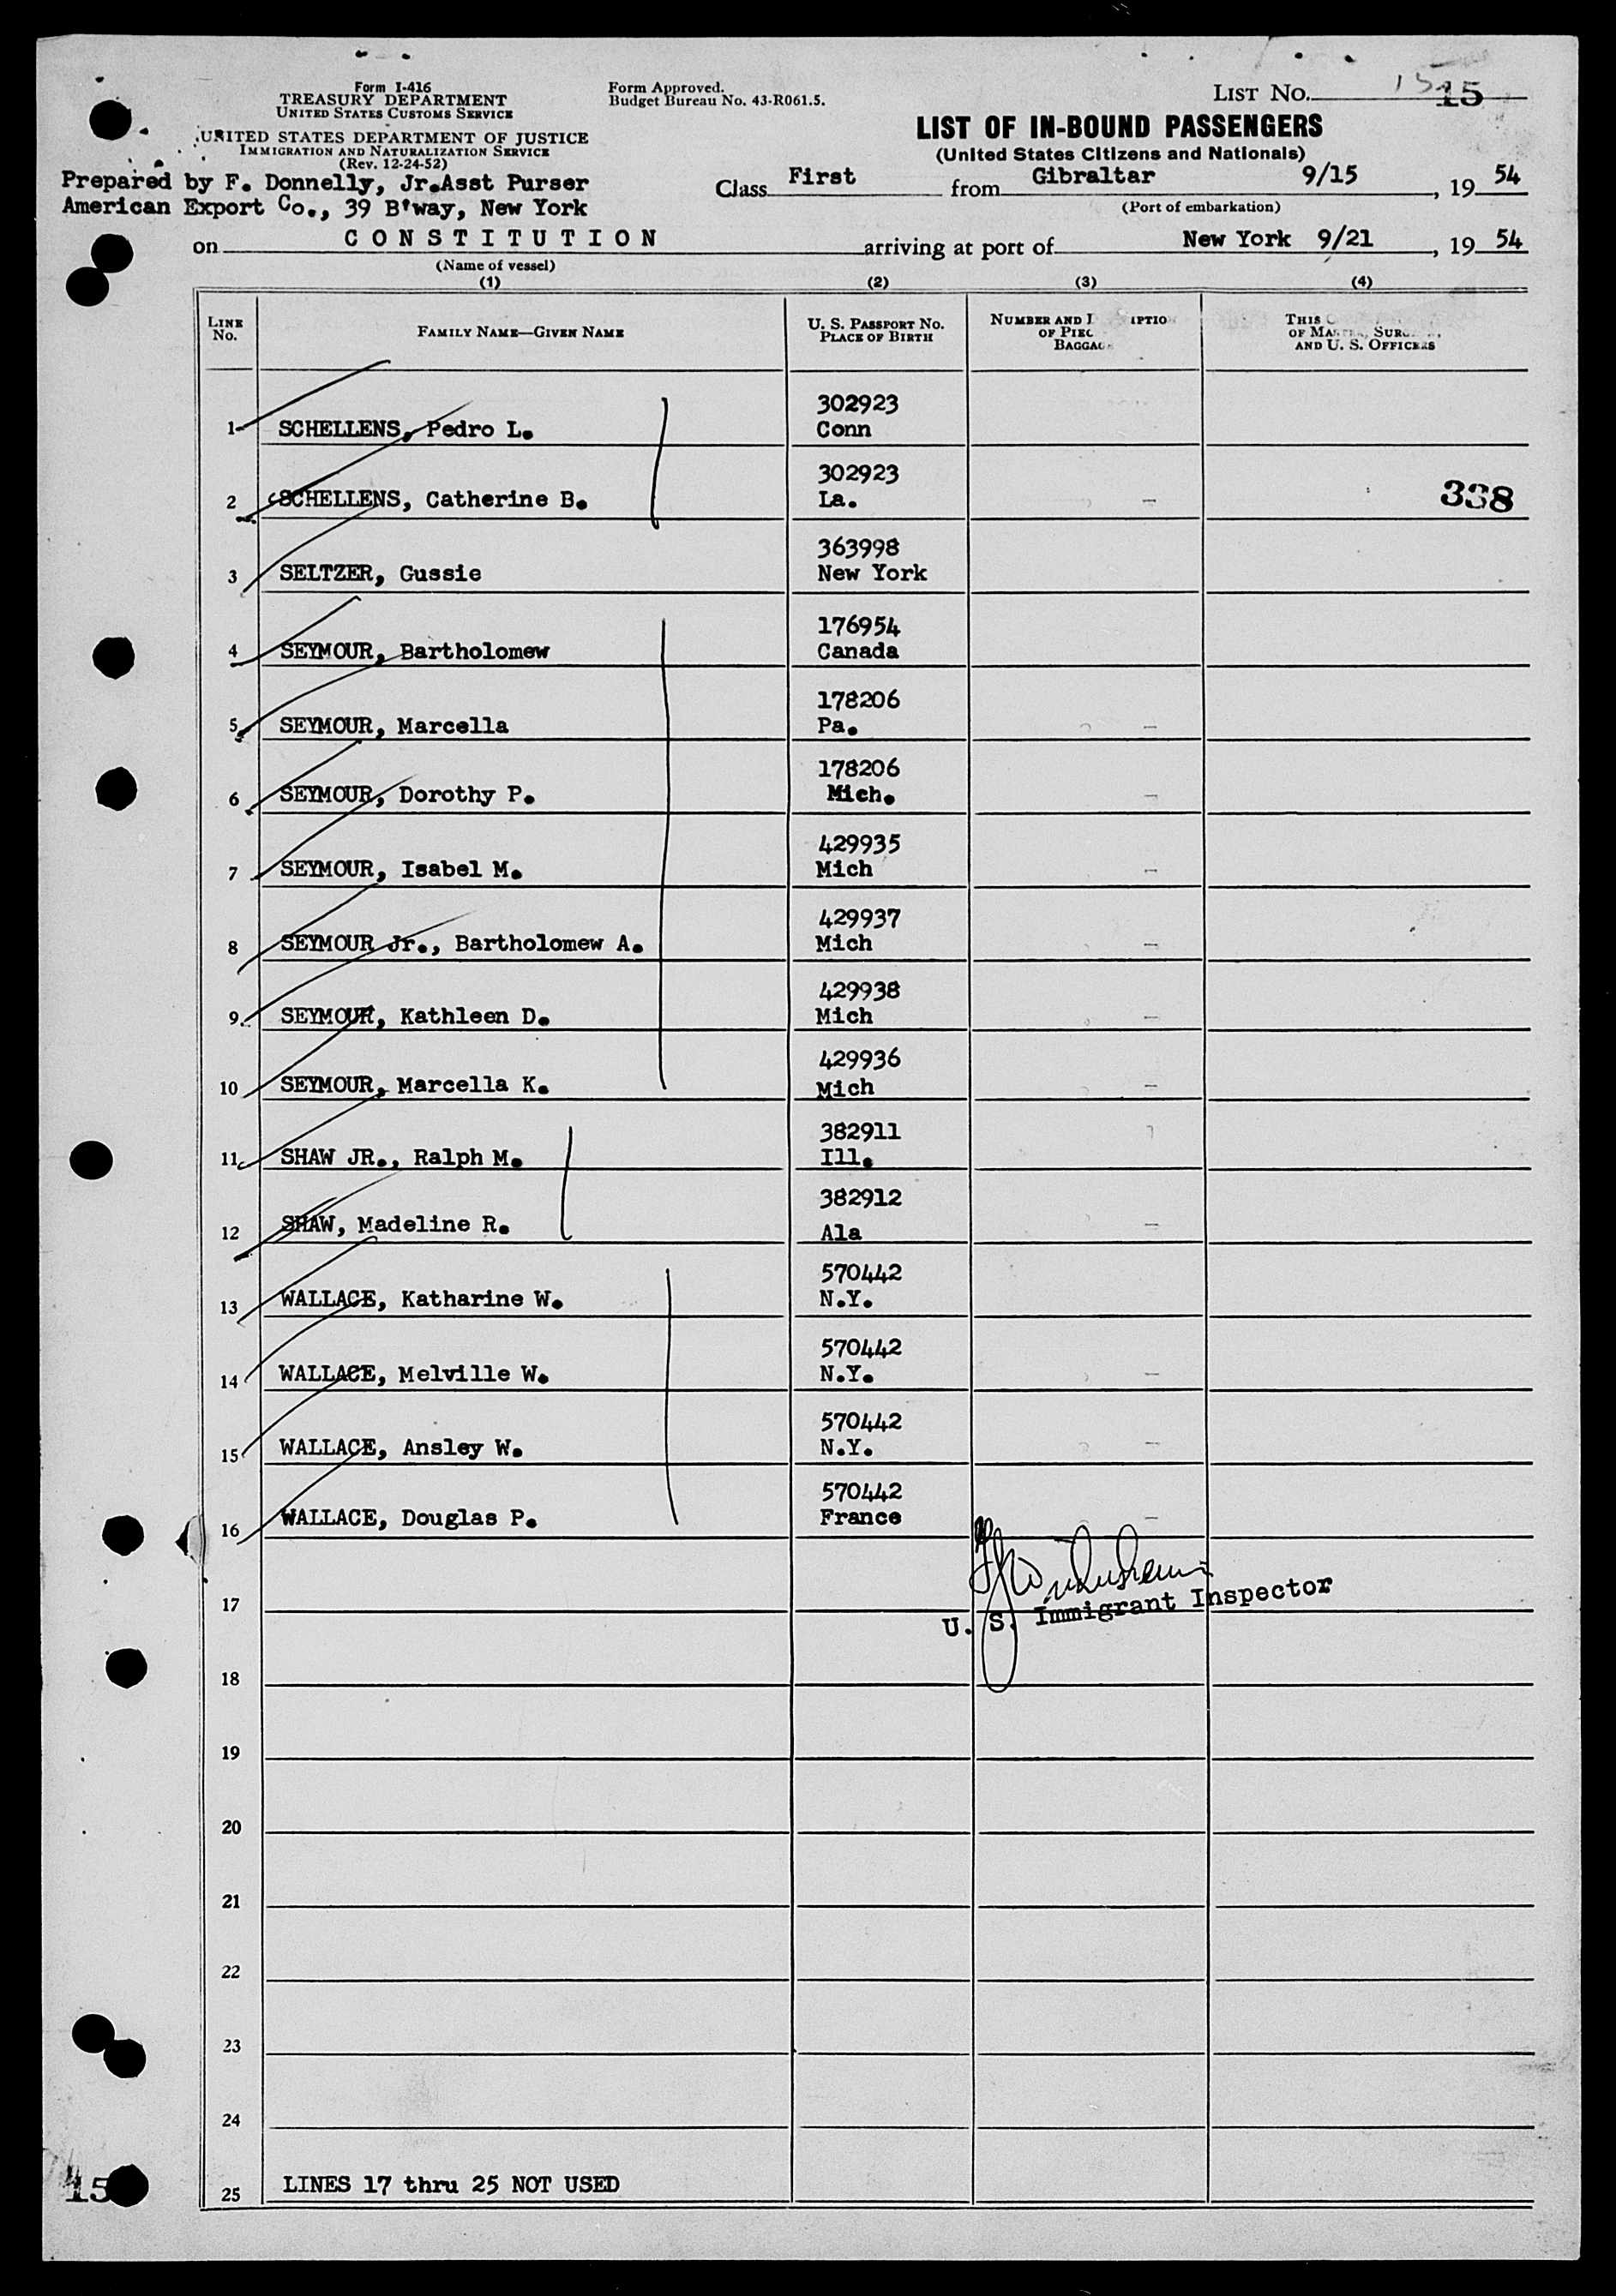 Form I-416
TREASURY DEPARTMENT
UNITED STATES CUSTOMS SERVICE
UNITED STATES DEPARTMENT OF JUSTICE
IMMIGRATION AND NATURALIZATION SERVICE
(Rev. 12-24-52)
Prepared by F. Donnelly, Jr.Asst Purser
American Export Co., 39 B'way, New York
Form Approved.
Budget Bureau No. 43-R061.5.
LIST NO. 15 15
LIST OF IN-BOUND PASSENGERS
(United States Citizens and Nationals)
Class First from Gibraltar 9/15, 19 54
(Port of embarkation)
on CONSTITUTION arriving at port of New York 9/21, 19 54
(Name of vessel)
(1) (2) (3) (4)
LINE No. FAMILY NAME—GIVEN NAME U. S. PASSPORT NO. PLACE OF BIRTH NUMBER AND OF BAGGAGE THIS OF AND U. S. OFFICERS
302923
1 SCHELLENS, Pedro L. Conn
302923
2 SCHELLENS, Catherine B. La. – 338
363998
3 SELTZER, Gussie New York
176954
4 SEYMOUR, Bartholomew Canada
178206
5 SEYMOUR, Marcella Pa. –
178206
6 SEYMOUR, Dorothy P. Mich. –
429935
7 SEYMOUR, Isabel M. Mich –
429937
8 SEYMOUR Jr., Bartholomew A. Mich –
429938
9 SEYMOUR, Kathleen D. Mich –
429936
10 SEYMOUR, Marcella K. Mich –
382911
11 SHAW JR., Ralph M. Ill.
382912
12 SHAW, Madeline R. Ala –
570442
13 WALLACE, Katharine W. N.Y.
570442
14 WALLACE, Melville W. N.Y. –
570442
15 WALLACE, Ansley W. N.Y. –
570442
16 WALLACE, Douglas P. France –
17
U. S. Immigrant Inspector
18
19
20
21
22
23
24
25 LINES 17 thru 25 NOT USED
15